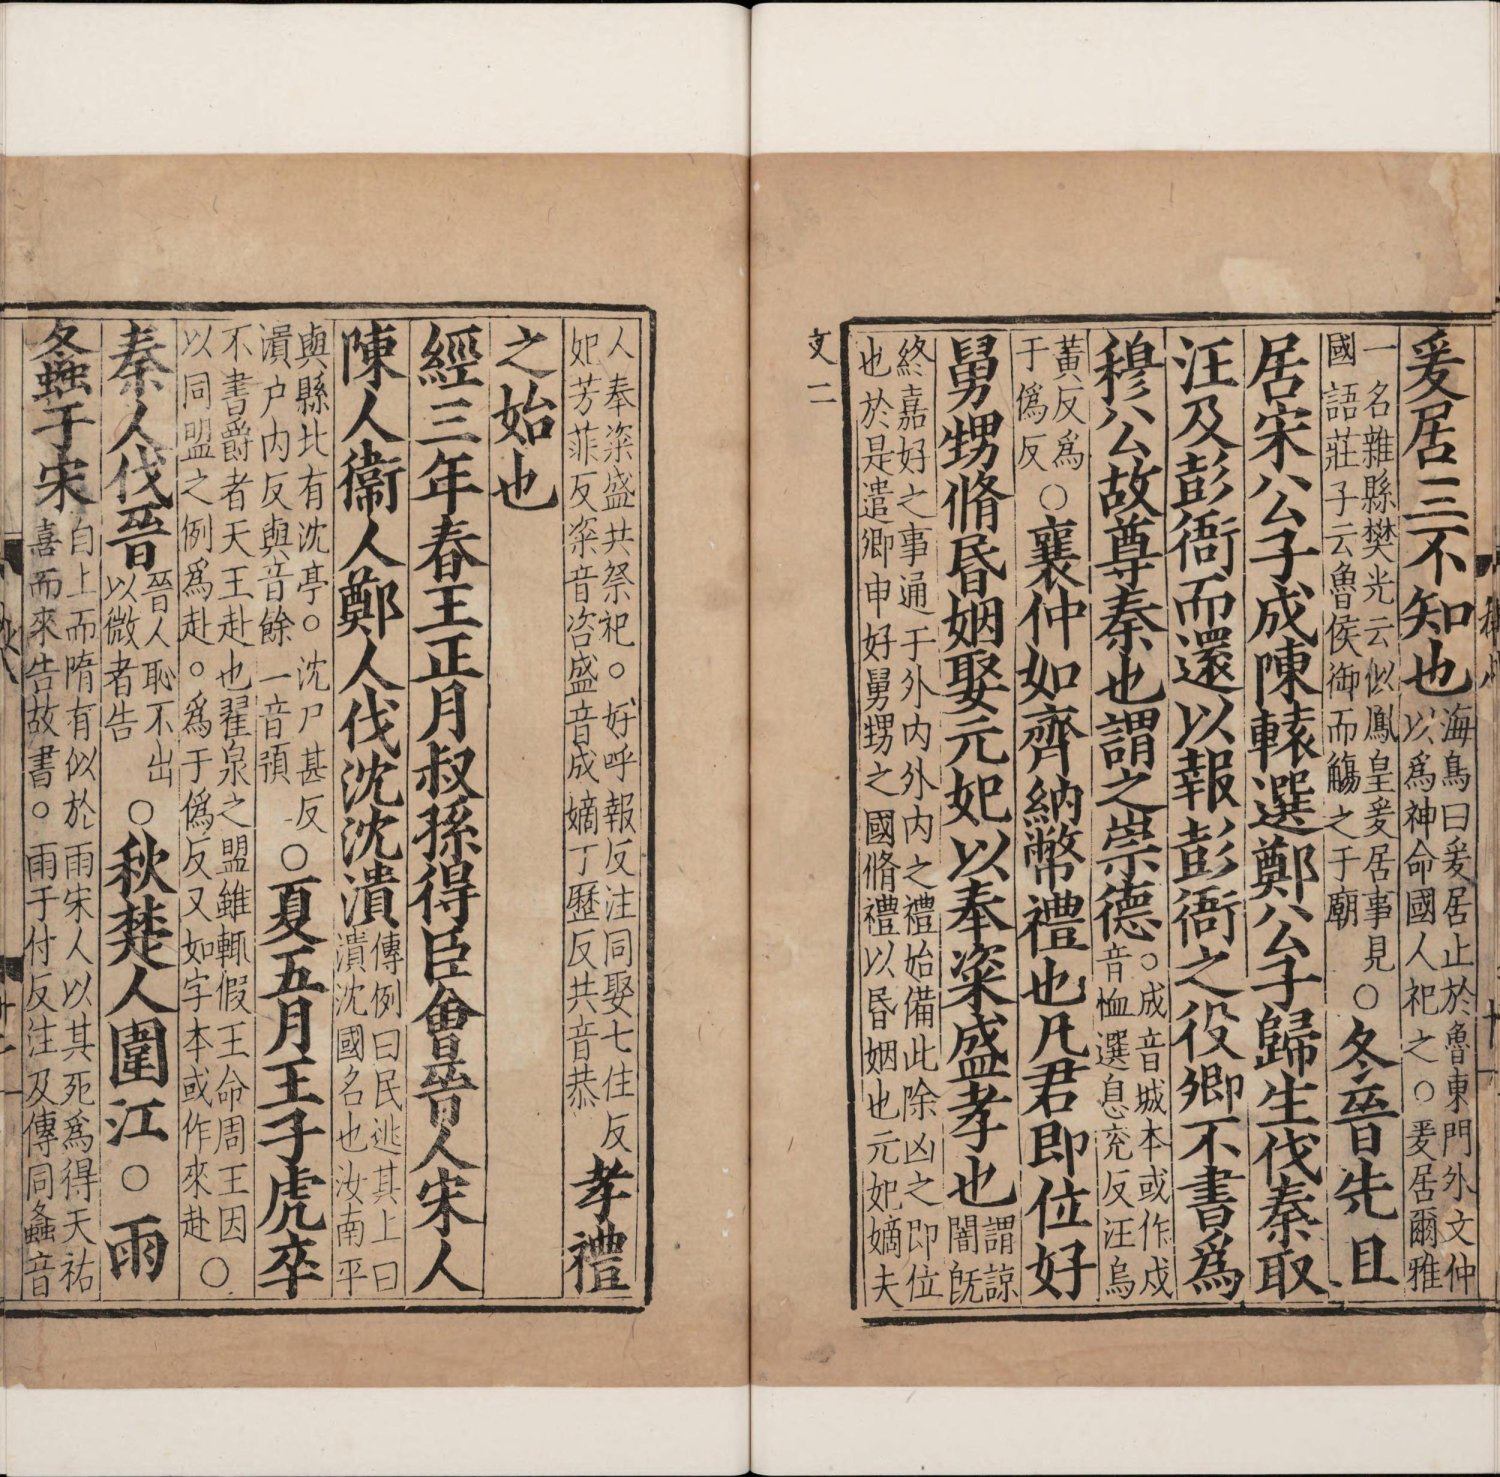 爰居三不知也海鳥曰爰居止於魯東門外文仲以爲神命國人祀之○爰居爾雅
一名雜縣樊光云似鳳皇爰居事見國語莊子云魯侯御而觴之于廟○冬晉先且
居宋公子成陳轅選鄭公子歸生伐秦取
汪及彭衙而還以報彭衙之役卿不書爲
穆公故尊秦也謂之崇德○成音城本或作戍音恤選息兖反汪烏
黃反爲于僞反○襄仲如齊納幣禮也凡君即位好
舅甥脩昏姻娶元妃以奉粢盛孝也謂諒闇既
終嘉好之事通于外内外内之禮始備此除凶之即位也於是遣卿申好舅甥之國脩禮以昏姻也元妃嫡夫
文二
人奉粢盛共祭祀○好呼報反注同娶七住反妃芳菲反粢音咨盛音成嫡丁歷反共音恭孝禮
之始也
經三年春王正月叔孫得臣會晉人宋人
陳人衞人鄭人伐沈沈潰傳例曰民逃其上曰潰沈國名也汝南平
輿縣北有沈亭○沈尸甚反潰户内反輿音餘一音預○夏五月王子虎卒
不書爵者天王赴也翟泉之盟雖輒假王命周王因以同盟之例爲赴○爲于僞反又如字本或作來赴○
秦人伐晉晉人恥不出以微者告○秋楚人圍江○雨
螽于宋自上而隋有似於雨宋人以其死爲得天祐喜而來告故書○雨于付反注及傳同螽音